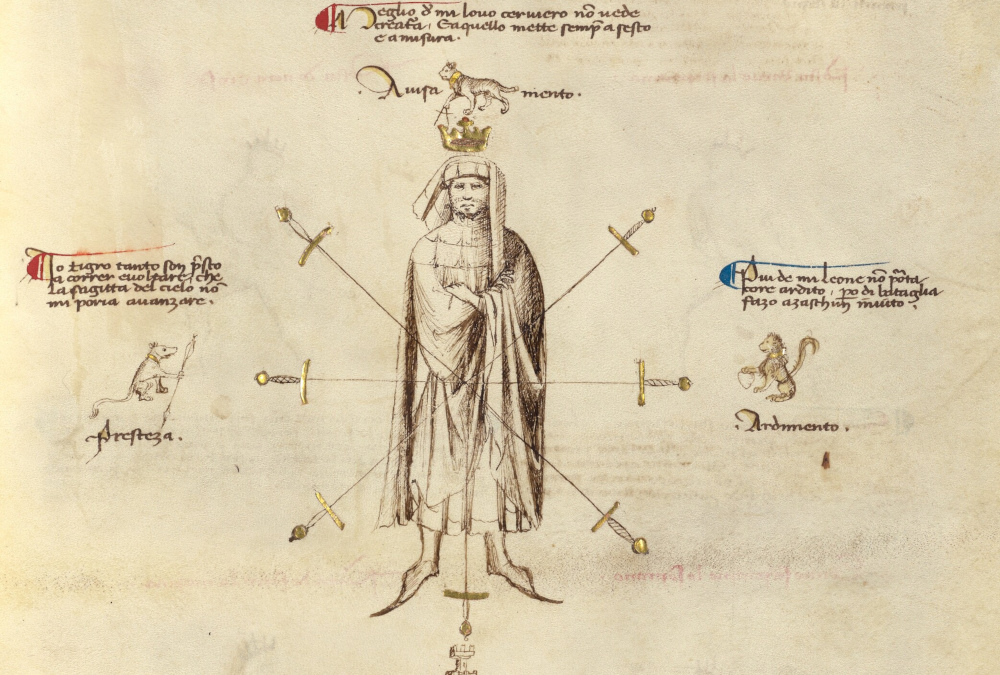 Meglio de mi lovo cerviero nõ vede
creaťa, Eaquello mette semp̃ a sesto
e a misura.
Avisa mento.
Io tigro tanto son p̃sto
a correr e voltare, che
la sagitta del cielo nõ
mi poria avanzare.
Piu de mi Leone nõ porta
core ardito, po di bataglia
fazo azaschun invito.
Presteza.
Ardimento.